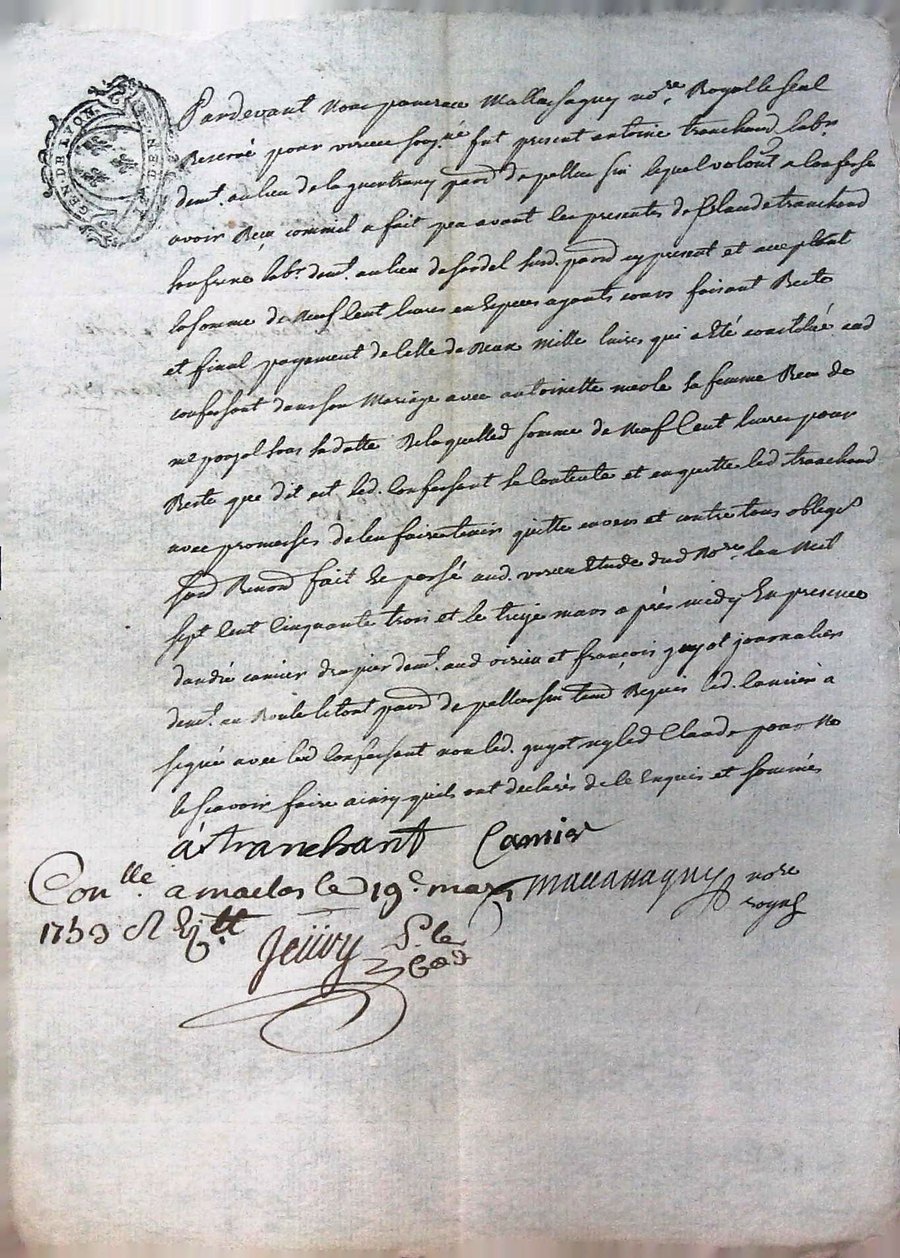 GEN. DE LYON
Pardevant nous pancrace Mallassagny no.re Royal le seul
Reservé pour virieu soug.né fut present antoine tranchand lab.r
dem.t au lieu de la parr.d de pellussin lequel volon.t a confessé
avoir Reçu comme il a fait peu avant les presentes de Claude tranchand
son frere lab.r dem.t au lieu de sur.d parr.d cy present et acceptant
la somme de neuf cent livres en Especes ayants cours faisant Reste
et final payement de celle de deux mille livres qui a Eté constitué aud
confessant dans son Mariage avec antoinette la femme Recu de
m.e sous sa datte de laquelle d. somme de neuf Cent livres pour
Reste que dit est led. Confessant se Contente et en quitte led tranchand
avec promesses de l'en faire tenir quitte envers et contre tous obliges
Fait Et passé aud. virieu Etude dud no.re lan Mil
sept Cent Cinquante trois et le treize mars après midy En presence
d'andré camier drapier dem.t aud virieu et françois guyot journalier
dem.t au parr.d de pellussin Requis led. Camier a
signé avec led Confessant non led. guyot ny led Claude pour ne
le scavoir faire ainsy quils ont declarés de ce Enquis et sommés
a tranchant Camier
Con.lle a maclas le 19.e mars mallassagny no.re
1753 royal